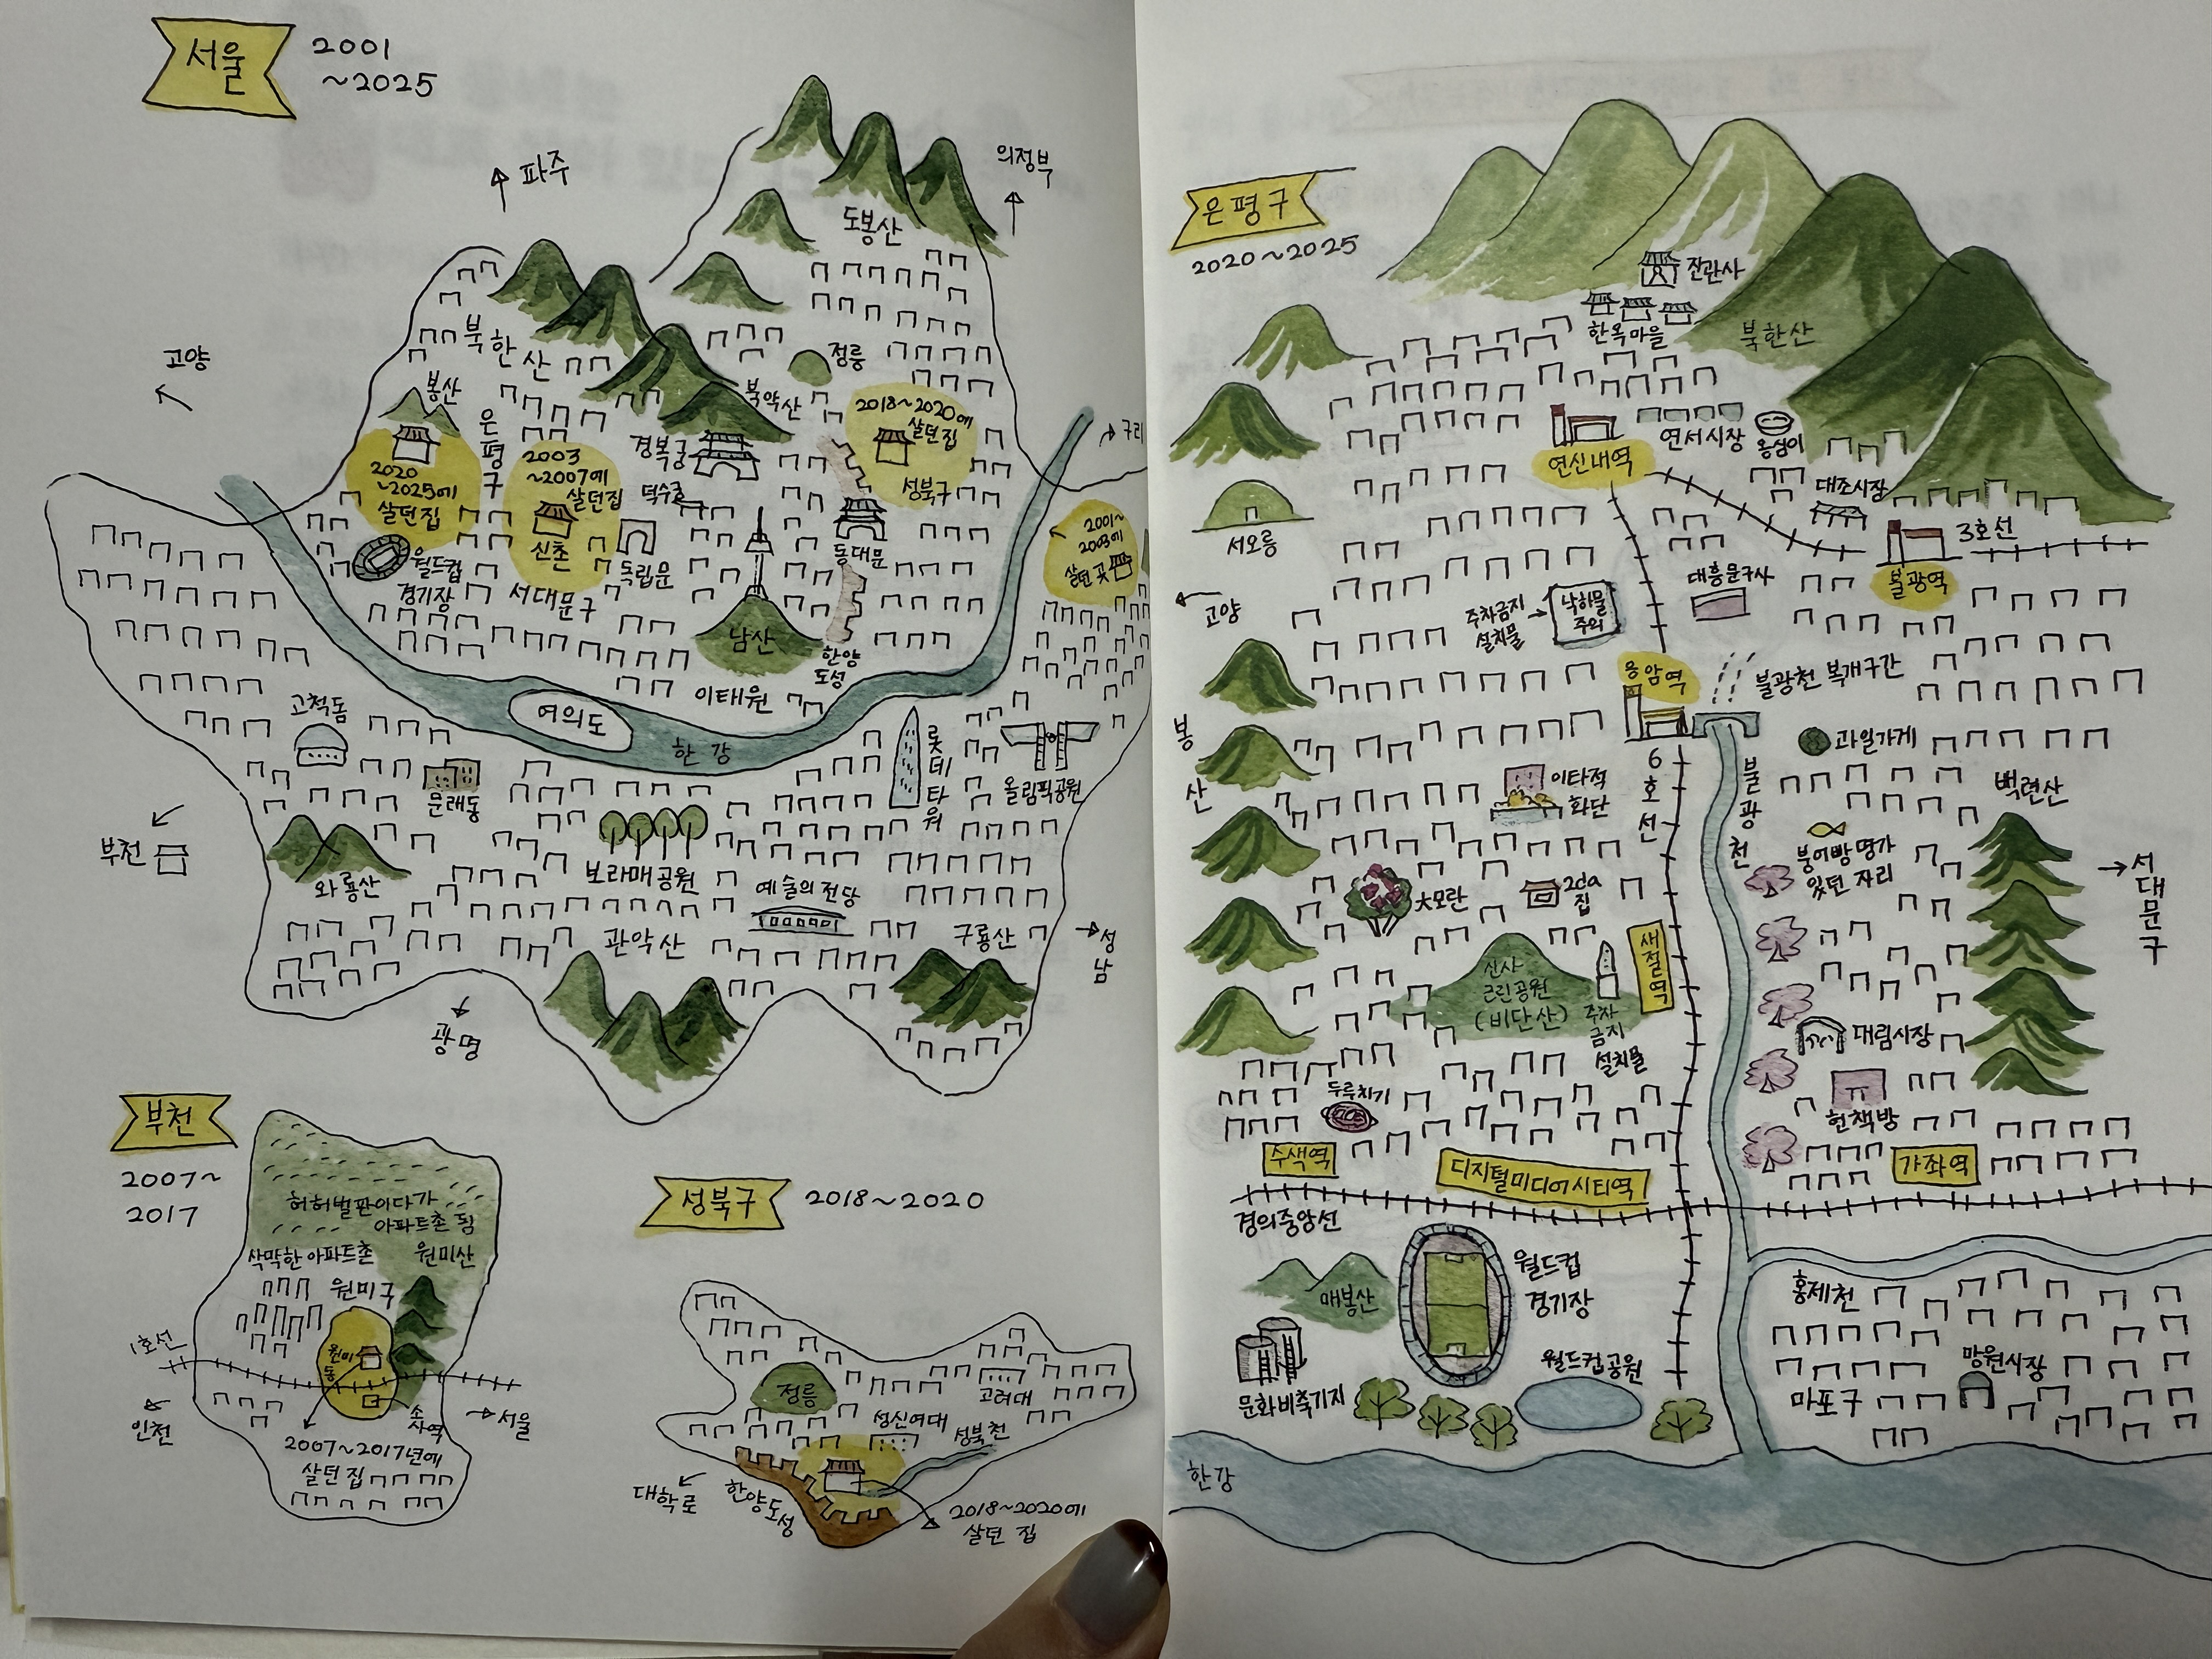 서울
2001
~2025
파주
의정부
도봉산
고양
북한산
정릉
봉산
은평구
북악산
2018~2020에
살던집
구리
경복궁
성북구
2020
~2025에
살던집
2003
~2007에
살던집
신촌
덕수궁
2001~
2003에
살던곳
월드컵
경기장
서대문구
독립문
동대문
남산
한양
도성
이태원
여의도
한강
고척돔
문래동
롯데타워
올림픽공원
부천
와룡산
보라매공원
예술의전당
관악산
구룡산
성남
광명
부천
2007~
2017
허허벌판이다가
아파트촌 됨
삭막한 아파트촌
원미산
원미구
1호선
원미동
소사역
인천
서울
2007~2017년에
살던집
성북구
2018~2020
정릉
고려대
성신여대
성북천
대학로
한양도성
2018~2020에
살던 집
은평구
2020~2025
진관사
한옥마을
북한산
연신내역
연서시장
옹심이
대조시장
서오릉
3호선
불광역
고양
주차금지
설치물
낙하물
주의
대흥문구사
응암역
불광천 복개구간
봉산
과일가게
6호선
불광천
이타적
화단
백련산
붕어빵명가
있던 자리
서대문구
大모란
2da
집
새절역
신사
근린공원
(비단산)
주차
금지
설치물
대림시장
두루치기
헌책방
수색역
디지털미디어시티역
가좌역
경의중앙선
매봉산
월드컵
경기장
홍제천
문화비축기지
월드컵공원
망원시장
마포구
한강